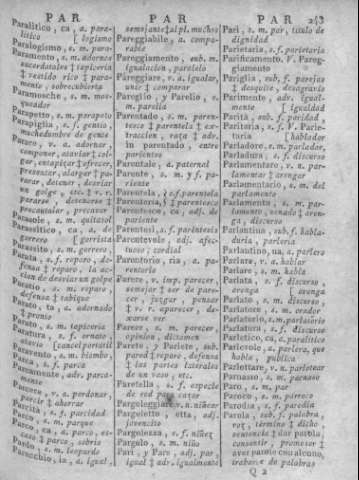 PAR
PAR
PAR 243
Paralitico, ca, a. para-
litico [logismo
Paralogismo, s. m. para-
Paramento, s. m. adorno
sacerdotales ‡ tapiceria
‡ vestido rico ‡ para-
mento, sobrecubierta
Paramosche, s. m. mos-
queador
Parapetto, s. m. parapeto
Parapiglia, s. f. gentio,
muchedumbre de gente
Parare, v. a. adornar,
componer, ataviar ‡ col-
gar, entapizar ‡ ofrecer,
presentar, alargar ‡ pa-
rar, detener, desviar
un golpe, etc. ‡ v. r.
pararse, detenerse ‡
precautelar, precaver
Parasole, s. m. quitasol
Parassitico, ca, a. de
gorrero [gorrista
Parassito, s. m. gorrero,
Parata, s. f. reparo, de-
fensa ‡ reparo, la ac-
cion de desviar un golpe
Parato, s. m. reparo,
defensa ‡ tabique
Parato, ta, a. adornado
‡ pronto
Parato, s. m. tapiceria
Paratura, s. f. ornato,
atavio [cancel portatil
Paravento, s. m. biombo,
Parca, s. f. parca
Parcamente, adv. parca-
mente
Parcere, v. a. perdonar,
parcir ‡ ahorrar
Parcità, s. f. parcidad
Parco, s. m. parque
Parco, ca, a. parco, es-
caso ‡ parco, sobrio
Pardo, s. m. leopardo
Parecchio, ia, a. igual,
semejante ‡ al pl. muchos
Pareggiabile, a. compa-
rable
Pareggiamento, sub. m.
igualacion, paralelo
Pareggiare, v. a. igualar,
unir ‡ comparar
Pareglio, y Parelio, s.
m. parelia
Parentado, s. m. paren-
tesco ‡ parentela ‡ ex-
traccion, raza ‡ adv.
in parentado, entre
parientes
Parentale, a. paternal
Parente, s. m. y f. pa-
riente
Parentela, s. f. parentela
Parenteria, s. ‡ parentesco
Parentesco, ca, adj. de
pariente
Parentesi, s. f. paréntesis
Parentevole, adj. afec-
tuoso; cordial
Parentorio, ria, a. pe-
rentorio
Parere, v. imp. parecer,
semejar ‡ ser de pare-
cer, juzgar, pensar
‡ v. r. aparecer, de-
xarse ver
Parere, s. m. parecer,
opinion, dictamen
Parete, y Pariete, sub.
pared ‡ reparo, defensa
‡ las partes laterales
de un vaso, etc.
Paretella, s. f. especie
de red para cazar
Pargoleggiare, v. n. niñear
Pargoletto, etta, adj.
jovencito
Pargolezza, s. f. niñez
Pargolo, s. m. niño
Pari, y Paro, adj. par,
igual ‡ adv. igualmente
Pari, s. m. par, titulo de
dignidad
Parietaria, s. f. parietaria
Parificamento, V. Pareg-
giamento
Pariglia, sub. f. parejas
‡ desquite, desagravio
Parimente, adv. igual-
mente [igualdad
Parità, sub. f. paridad,
Paritoria, s. f. V. Parie-
toria [hablador
Parladore, s. m. parlador,
Parladura, s. f. discurso
Parlamentare, v. a. par-
lamentar ‡ arengar
Parlamentario, s. m. del
parlamento
Parlamento, s. m. par-
lamento, senado ‡ aren-
ga, discurso
Parlantina, sub. f. habla-
duria, parleria
Parlantino, na, s. parlero
Parlare, v. a. hablar
Parlare, s. m. habla
Parlata, s. f. discurso,
arenga [arenga
Parlato, s. m. discurso,
Parlatore, s. m. orador
Parlatorio, s. m. parlatorio
Parlatura, s. f. discurso
Parletico, ca, a. paralitico
Parlevole, a. parlera, que
habla poco
Parlottare, v. n. parlotear
Parnasso, s. m. parnaso
Paro, s. m. par
Paroco, s. m. parroco
Parodia, s. f. parodia
Parola, sub. f. palabra,
voz, término ‡ dicho
sentencia ‡ dar parola,
consentir, prometer ‡
aver parole con alcuno,
trabarse de palabras
Q 2